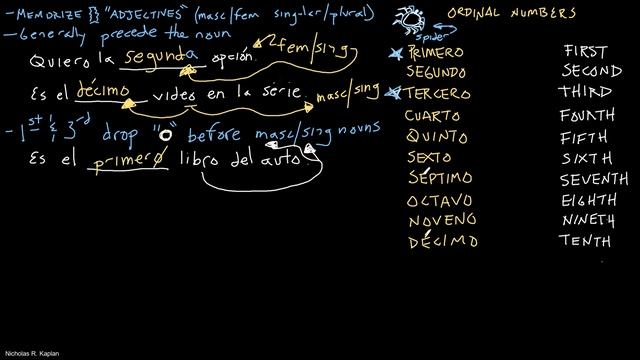 - MEMORIZE {} "ADJECTIVES" (masc/fem singular/plural)
- Generally precede the noun
Quiero la segunda opción.
fem/sing
Es el décimo video en la serie.
masc/sing
- 1st & 3rd drop "o" before masc/sing nouns
Es el primero libro del auto.
ORDINAL NUMBERS
spider
PRIMERO FIRST
SEGUNDO SECOND
TERCERO THIRD
CUARTO FOURTH
QUINTO FIFTH
SEXTO SIXTH
SÉPTIMO SEVENTH
OCTAVO EIGHTH
NOVENO NINETH
DÉCIMO TENTH
Nicholas R. Kaplan